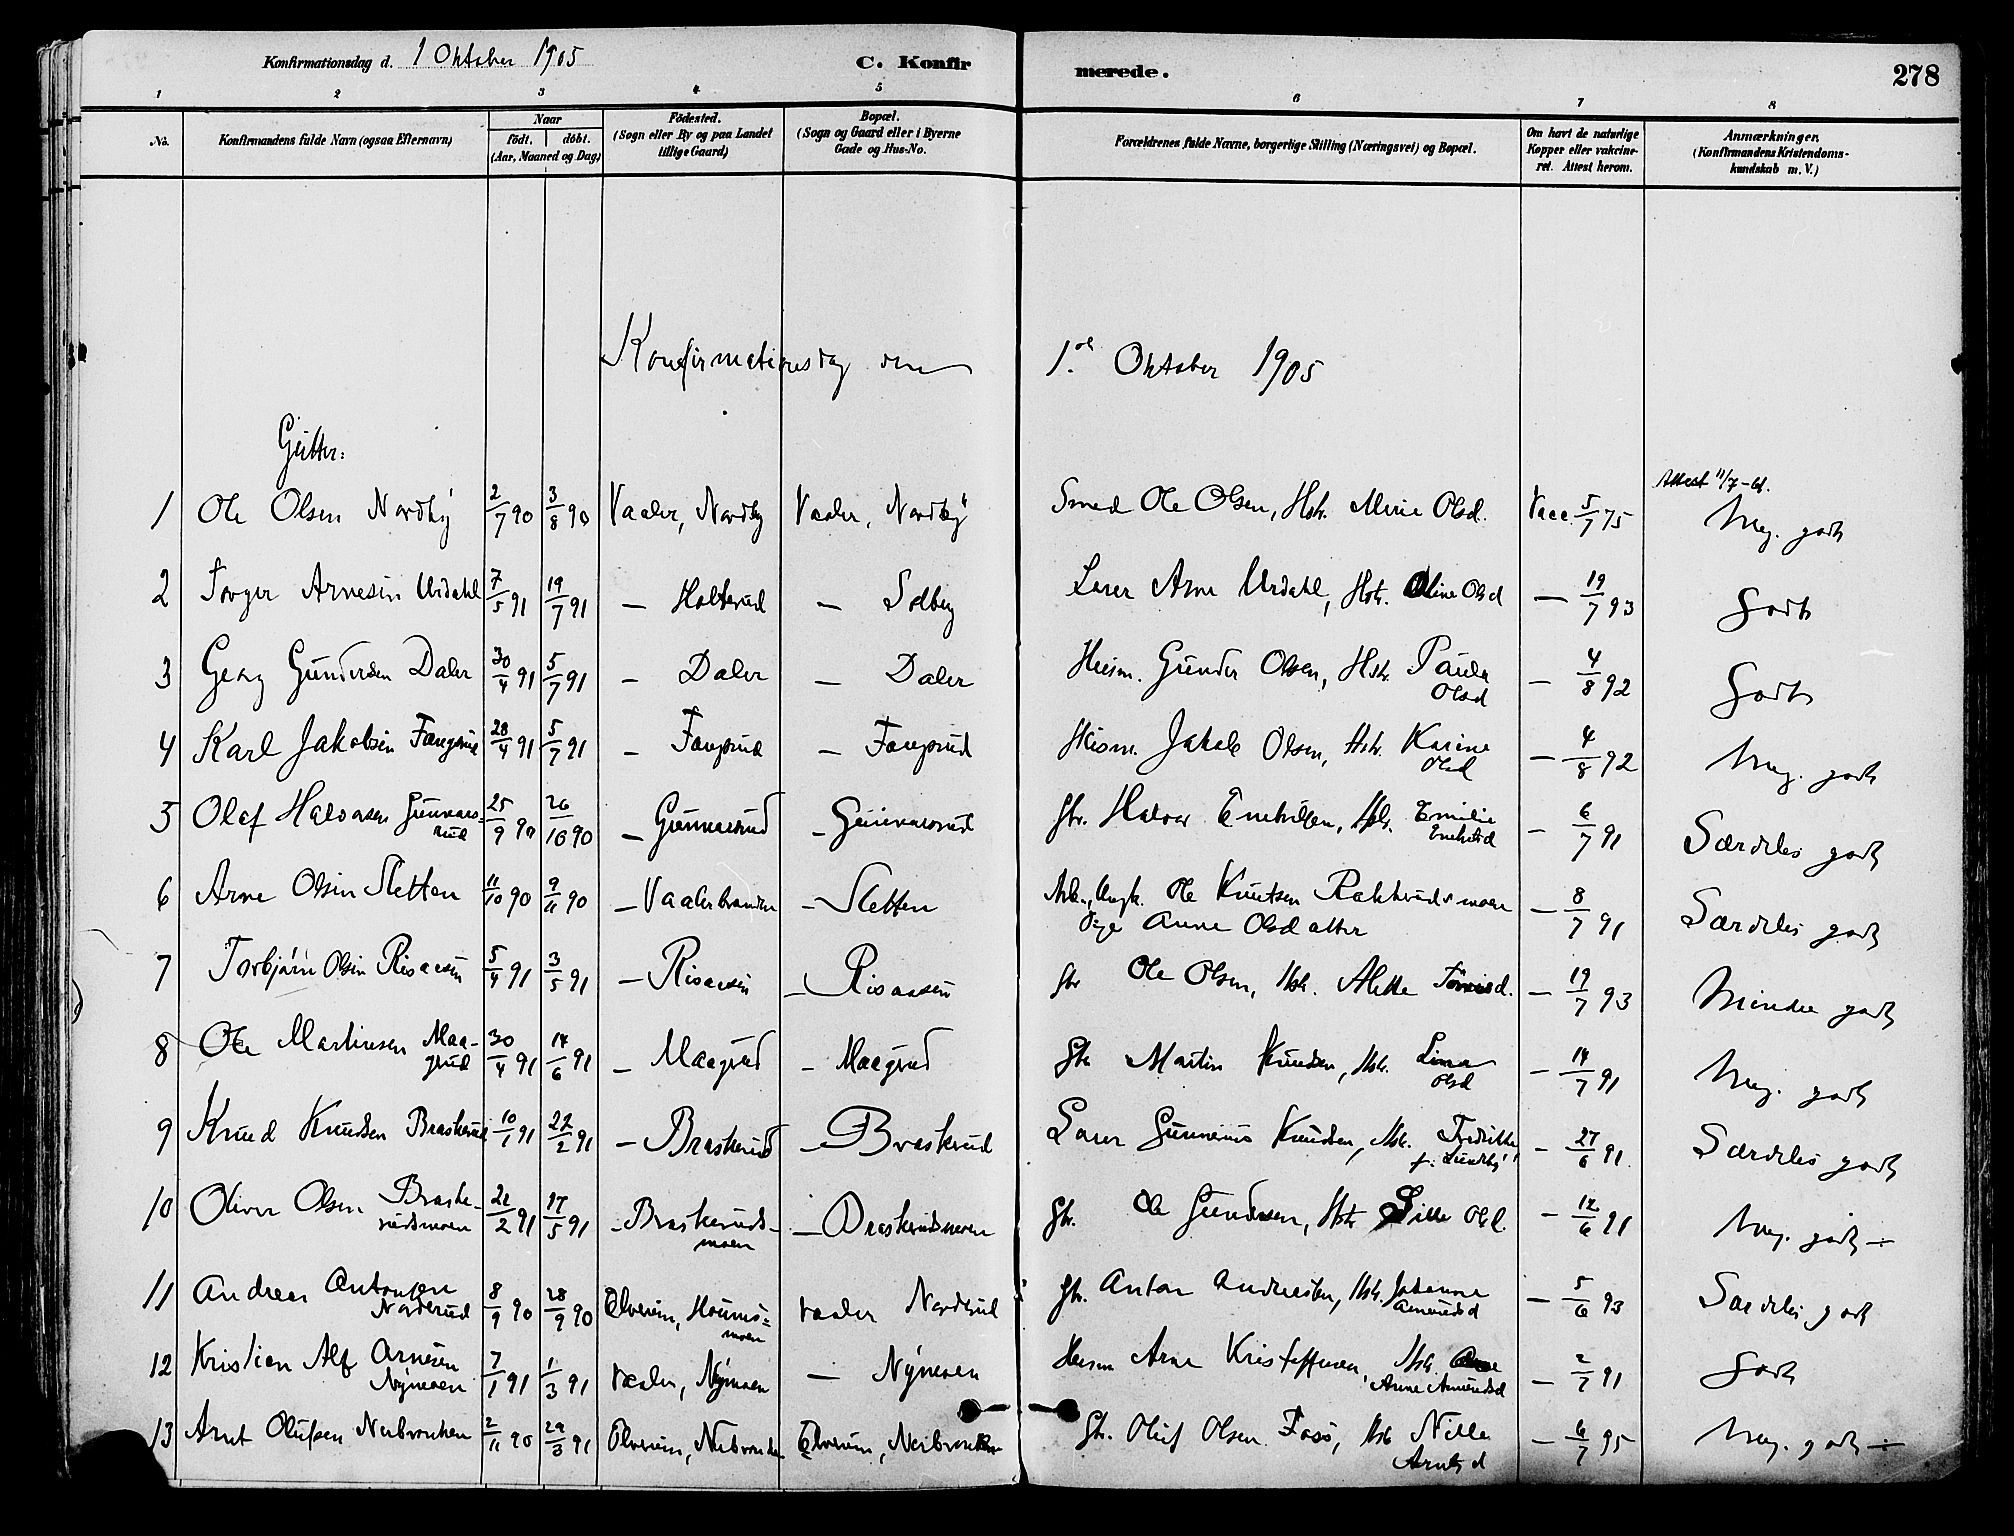 Konfirmationsdag d. 1 Oktober 1905 C. Konfirmerede. 278
1 2 3 4 5 6 7 8
No. Konfirmandens fulde Navn (ogsaa Efternavn) Naar født. døbt. (Aar, Maaned og Dag) Fødested. (Sogn eller By og paa Landet tillige Gaard) Bopæl. (Sogn og Gaard eller i Byerne Gade og Hus-No. Forældrenes fulde Navne, borgerlige Stilling (Næringsvei) og Bopæl. Om havt de naturlige Kopper eller vakcineret. Attest herom. Anmærkninger. (Konfirmandens Kristendomskundskab m. V.)
Konfirmationsdag den 1. Oktober 1905
Gutter:
Attest 11/7-
1 Ole Olsen Nordby 2/7 90 3/8 90 Vaaler, Nordby Vaaler, Nordby Smed Ole Olsen, Hstr. Mirie Olsd. Vacc. 5/7 75 Meg. godt
2 Torger Arnesen Urdahl 7/5 91 19/7 91 — Holterud — Solberg Lærer Arne Urdahl, Hstr. Oline Olsd — 19/7 93 Godt
3 Georg Gundersen Daler 30/4 91 5/7 91 — Daler — Daler Husm. Gunder Olsen, Hstr. Paula Olsd — 4/8 92 Godt
4 Karl Jakobsen Fangrud 28/4 91 5/7 91 — Fangrud — Fangrud Husm. Jakob Olsen, Hstr. Karine Olsd — 4/8 92 Meg. godt
5 Olaf Halvorsen Gunnarsrud 25/9 90 26/10 90 — Gunnarsrud — Gunnarsrud Gbr. Halvor Enehilsen, Hstr. Emilie — 6/7 91 Særdeles godt
6 Arne Olsen Sletten 11/10 90 9/11 90 — Vaalerbranden — Sletten Arb., Ungk. Ole Knutsen Rakkeudsmoen — 8/7 91 Særdeles godt
Pige Anne Olsdatter
7 Torbjørn Olsen Risaasen 5/4 91 3/5 91 — Risaasen — Risaasen Gbr Ole Olsen, Hstr. Alette — 19/7 93 Mindre godt
8 Ole Martinsen Maagrud 30/4 91 14/6 91 — Maagrud — Maagrud Gbr Martin Knudsen, Hstr. Lina Olsd — 14/7 91 Meg. godt
9 Knud Knudsen Braskerud 10/1 91 22/2 91 — Braskerud — Braskerud Lærer Gunnerius Knudsen, Hstr. Fredrikke f. Lundby — 27/6 91 Særdeles godt
10 Oliver Olsen Braskerudsmoen 22/2 91 17/5 91 — Braskerudsmoen — Braskerudsmoen Gbr. Ole Gundersen, Hstr Sille Olsd. — 12/6 91 Meg. godt ÷
11 Andreas Antonsen Norderud 8/9 90 28/9 90 Elverum, Hounsmoen Vaaler Norderud Gbr. Anton Andresen, Hstr. Johanne Amundsd — 5/6 93 Særdeles godt
12 Kristian Alf Arnesen Nymoen 7/1 91 1/3 91 Vaaler, Nymoen — Nymoen Husm Arne Kristoffersen, Hstr Anne Amundsd — 2/7 91 Godt
13 Arnt Olufsen Nerbrenken 2/11 90 29/3 91 Elverum, Nerbrenken Elverum, Nerbrenken Gbr. Oluf Olsen Fosø, Hstr Nille Arntsd — 6/7 95 Meg. godt ÷